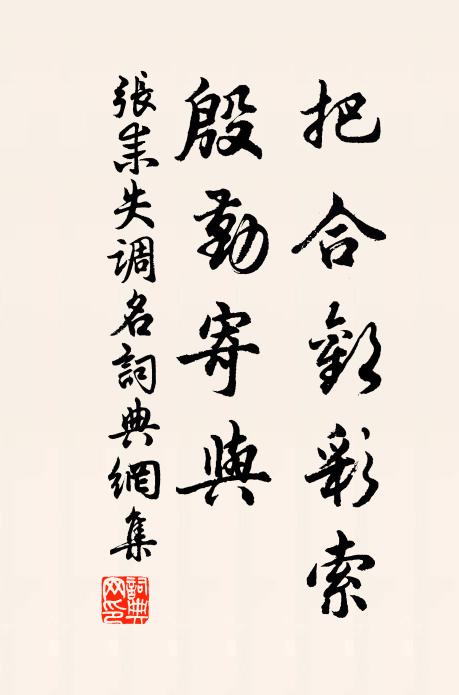 把合歡彩索
殷勤寄與
張耒失调名詞典網集
詞典网印